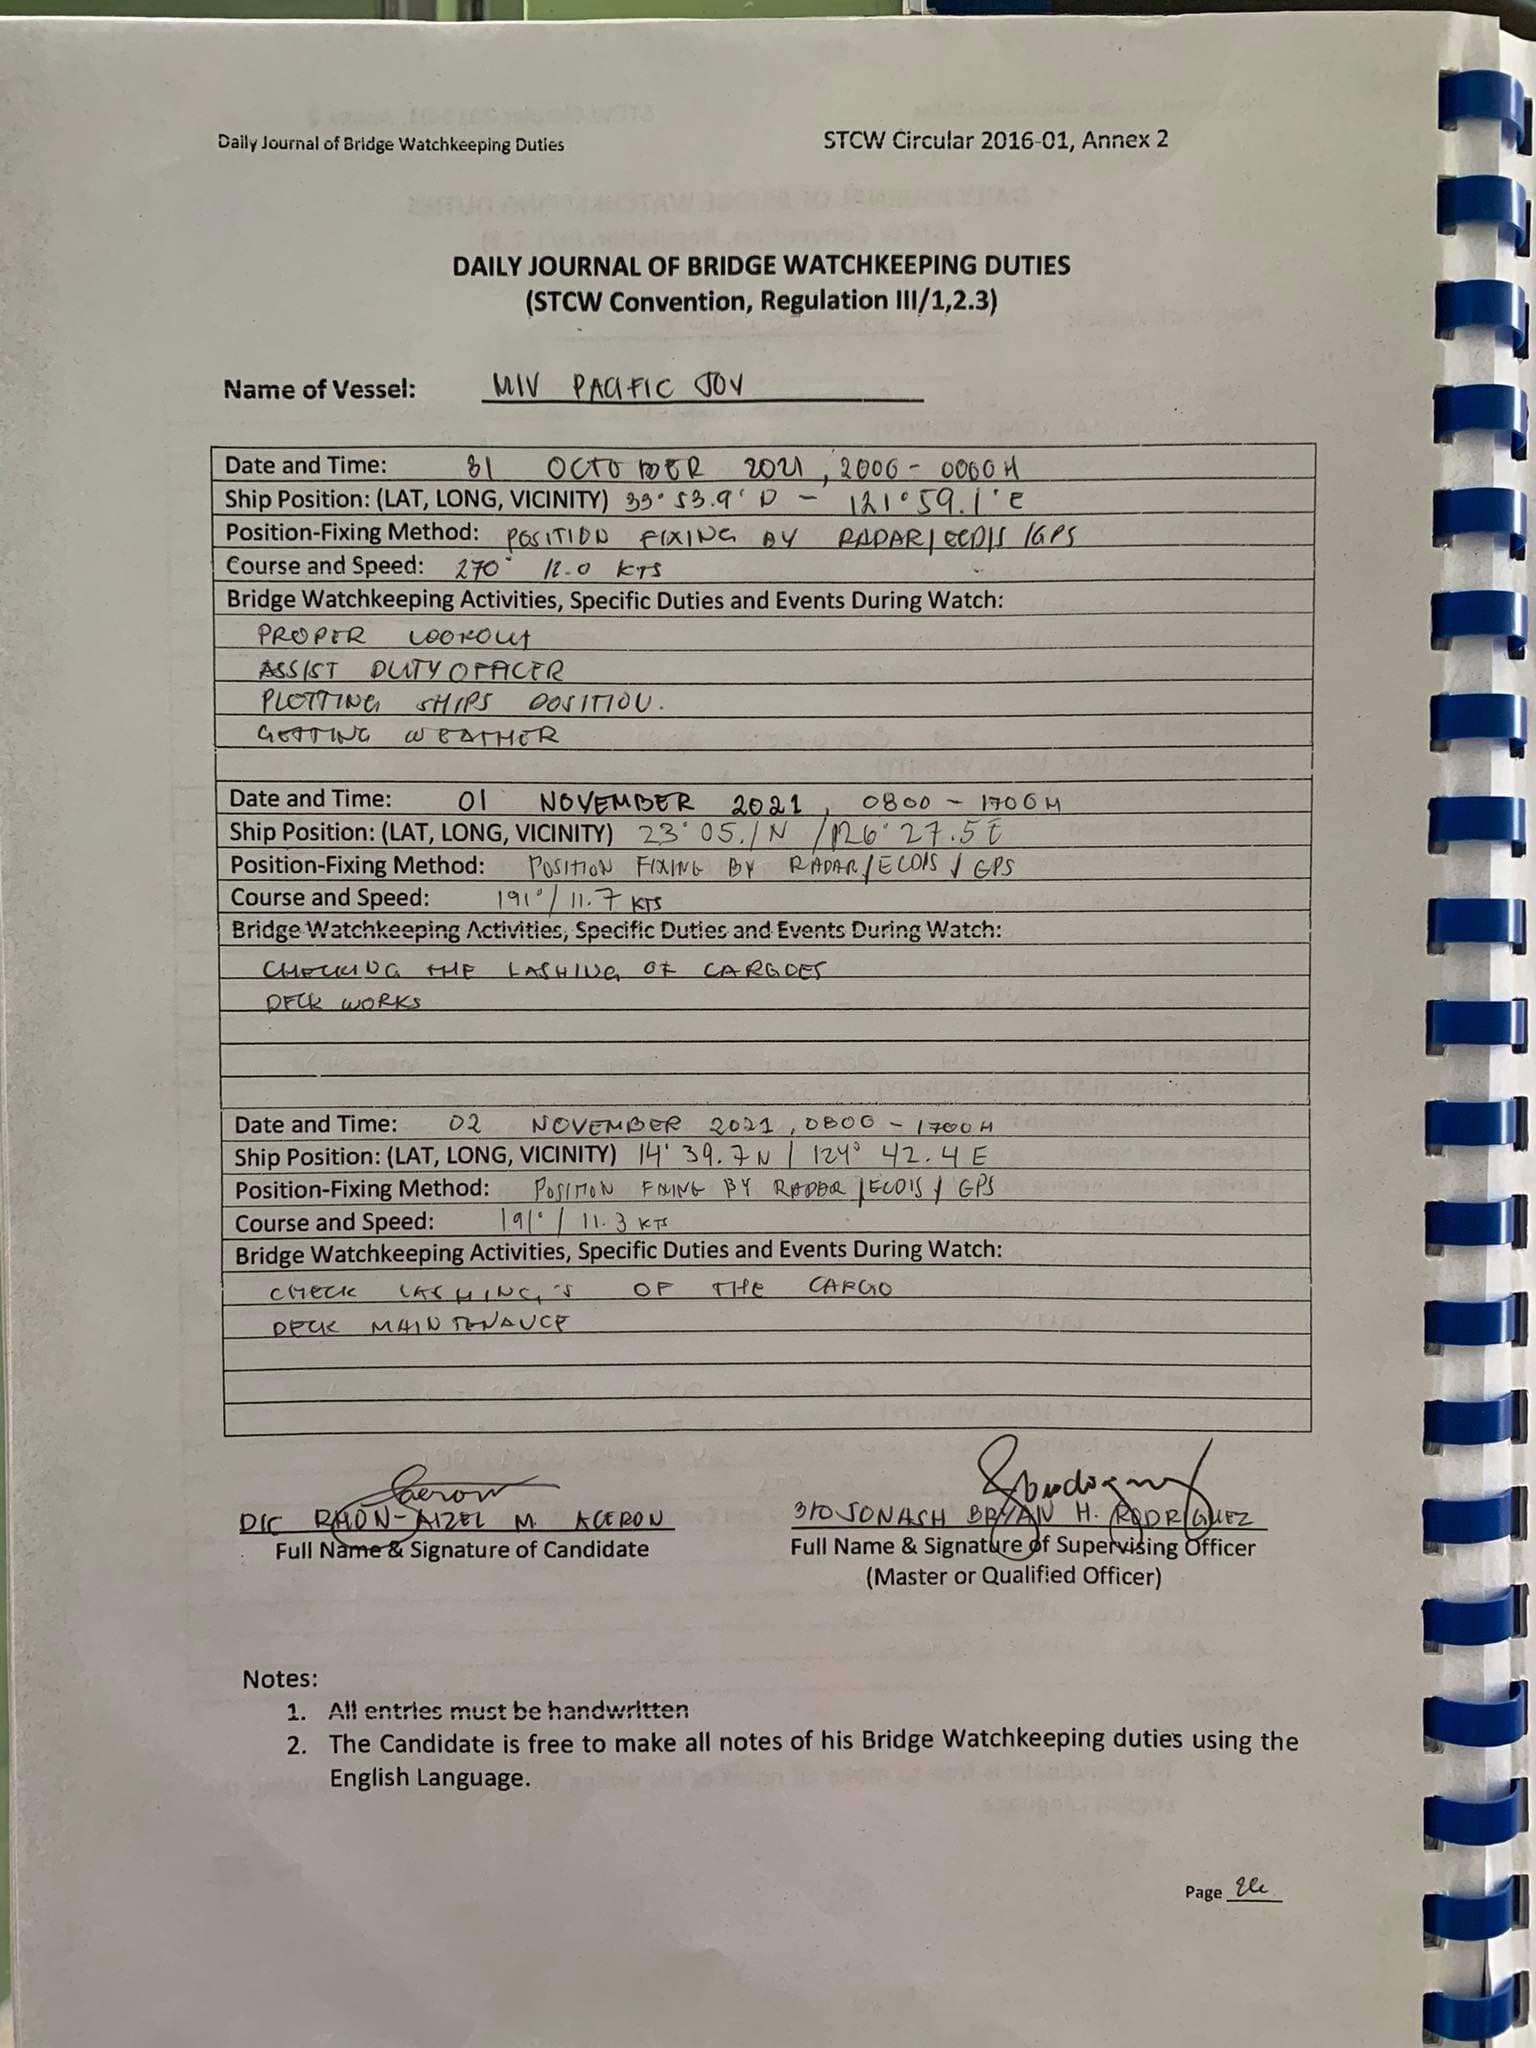 Daily Journal of Bridge Watchkeeping Duties STCW Circular 2016-01, Annex 2
DAILY JOURNAL OF BRIDGE WATCHKEEPING DUTIES
(STCW Convention, Regulation III/1,2.3)
Name of Vessel: M/V PACIFIC JOY
Date and Time: 31 OCTOBER 2021, 2000 - 0000H
Ship Position: (LAT, LONG, VICINITY) 33° 53.9' N - 121° 59.1' E
Position-Fixing Method: POSITION FIXING BY RADAR/ECDIS/GPS
Course and Speed: 270° 12.0 KTS
Bridge Watchkeeping Activities, Specific Duties and Events During Watch:
PROPER LOOKOUT
ASSIST DUTY OFFICER
PLOTTING SHIPS POSITION.
GETTING WEATHER
Date and Time: 01 NOVEMBER 2021, 0800 - 1700H
Ship Position: (LAT, LONG, VICINITY) 23° 05.1 N / 126° 27.5 E
Position-Fixing Method: POSITION FIXING BY RADAR/ECDIS/GPS
Course and Speed: 191° / 11.7 KTS
Bridge Watchkeeping Activities, Specific Duties and Events During Watch:
CHECKING THE LASHING OF CARGOES
DECK WORKS
Date and Time: 02 NOVEMBER 2021, 0800 - 1700H
Ship Position: (LAT, LONG, VICINITY) 14° 39.7 N / 124° 42.4 E
Position-Fixing Method: POSITION FIXING BY RADAR/ECDIS/GPS
Course and Speed: 191° / 11.3 KTS
Bridge Watchkeeping Activities, Specific Duties and Events During Watch:
CHECK LASHING'S OF THE CARGO
DECK MAINTENANCE
D/C RHON-AIZEL M. ACERON 3/O JONASH BRYAN H. RODRIGUEZ
Full Name & Signature of Candidate Full Name & Signature of Supervising Officer
(Master or Qualified Officer)
Notes:
1. All entries must be handwritten
2. The Candidate is free to make all notes of his Bridge Watchkeeping duties using the
English Language.
Page